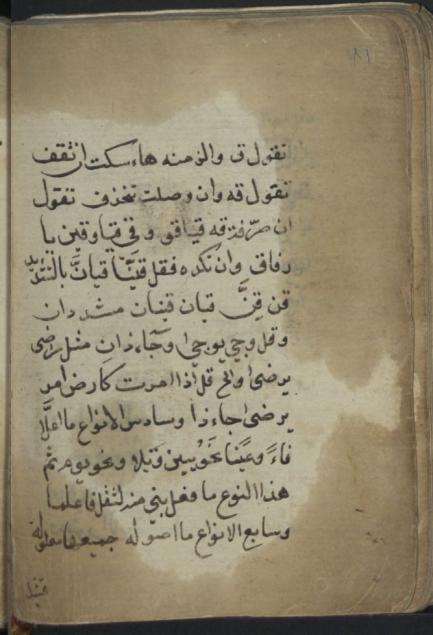 ٨١
تقول ق والزمنه هاء سكت ان تقف
تقول قه وان وصلت تحذف تقول
ان صرفته قه قيا قو وقي قيا وقين يا
رفاق وان تكده فقل قيَنَّ قيانَّ بالتشديد
قن قِنَّ قيان قينان مشددان
وقل وجي يوجي وجآء ذان مثل رضى
يرضى قل اذا امرت كارض امر
يرضى جاء ذا وسادس الانواع ما اعلا
فاءً وعينا نحو يين ويلا ونحو يوم ثم
هذا النوع ما فعل بني منه لثقل فاعلما
وسابع الانواع ما اصوله جميعها معلولة